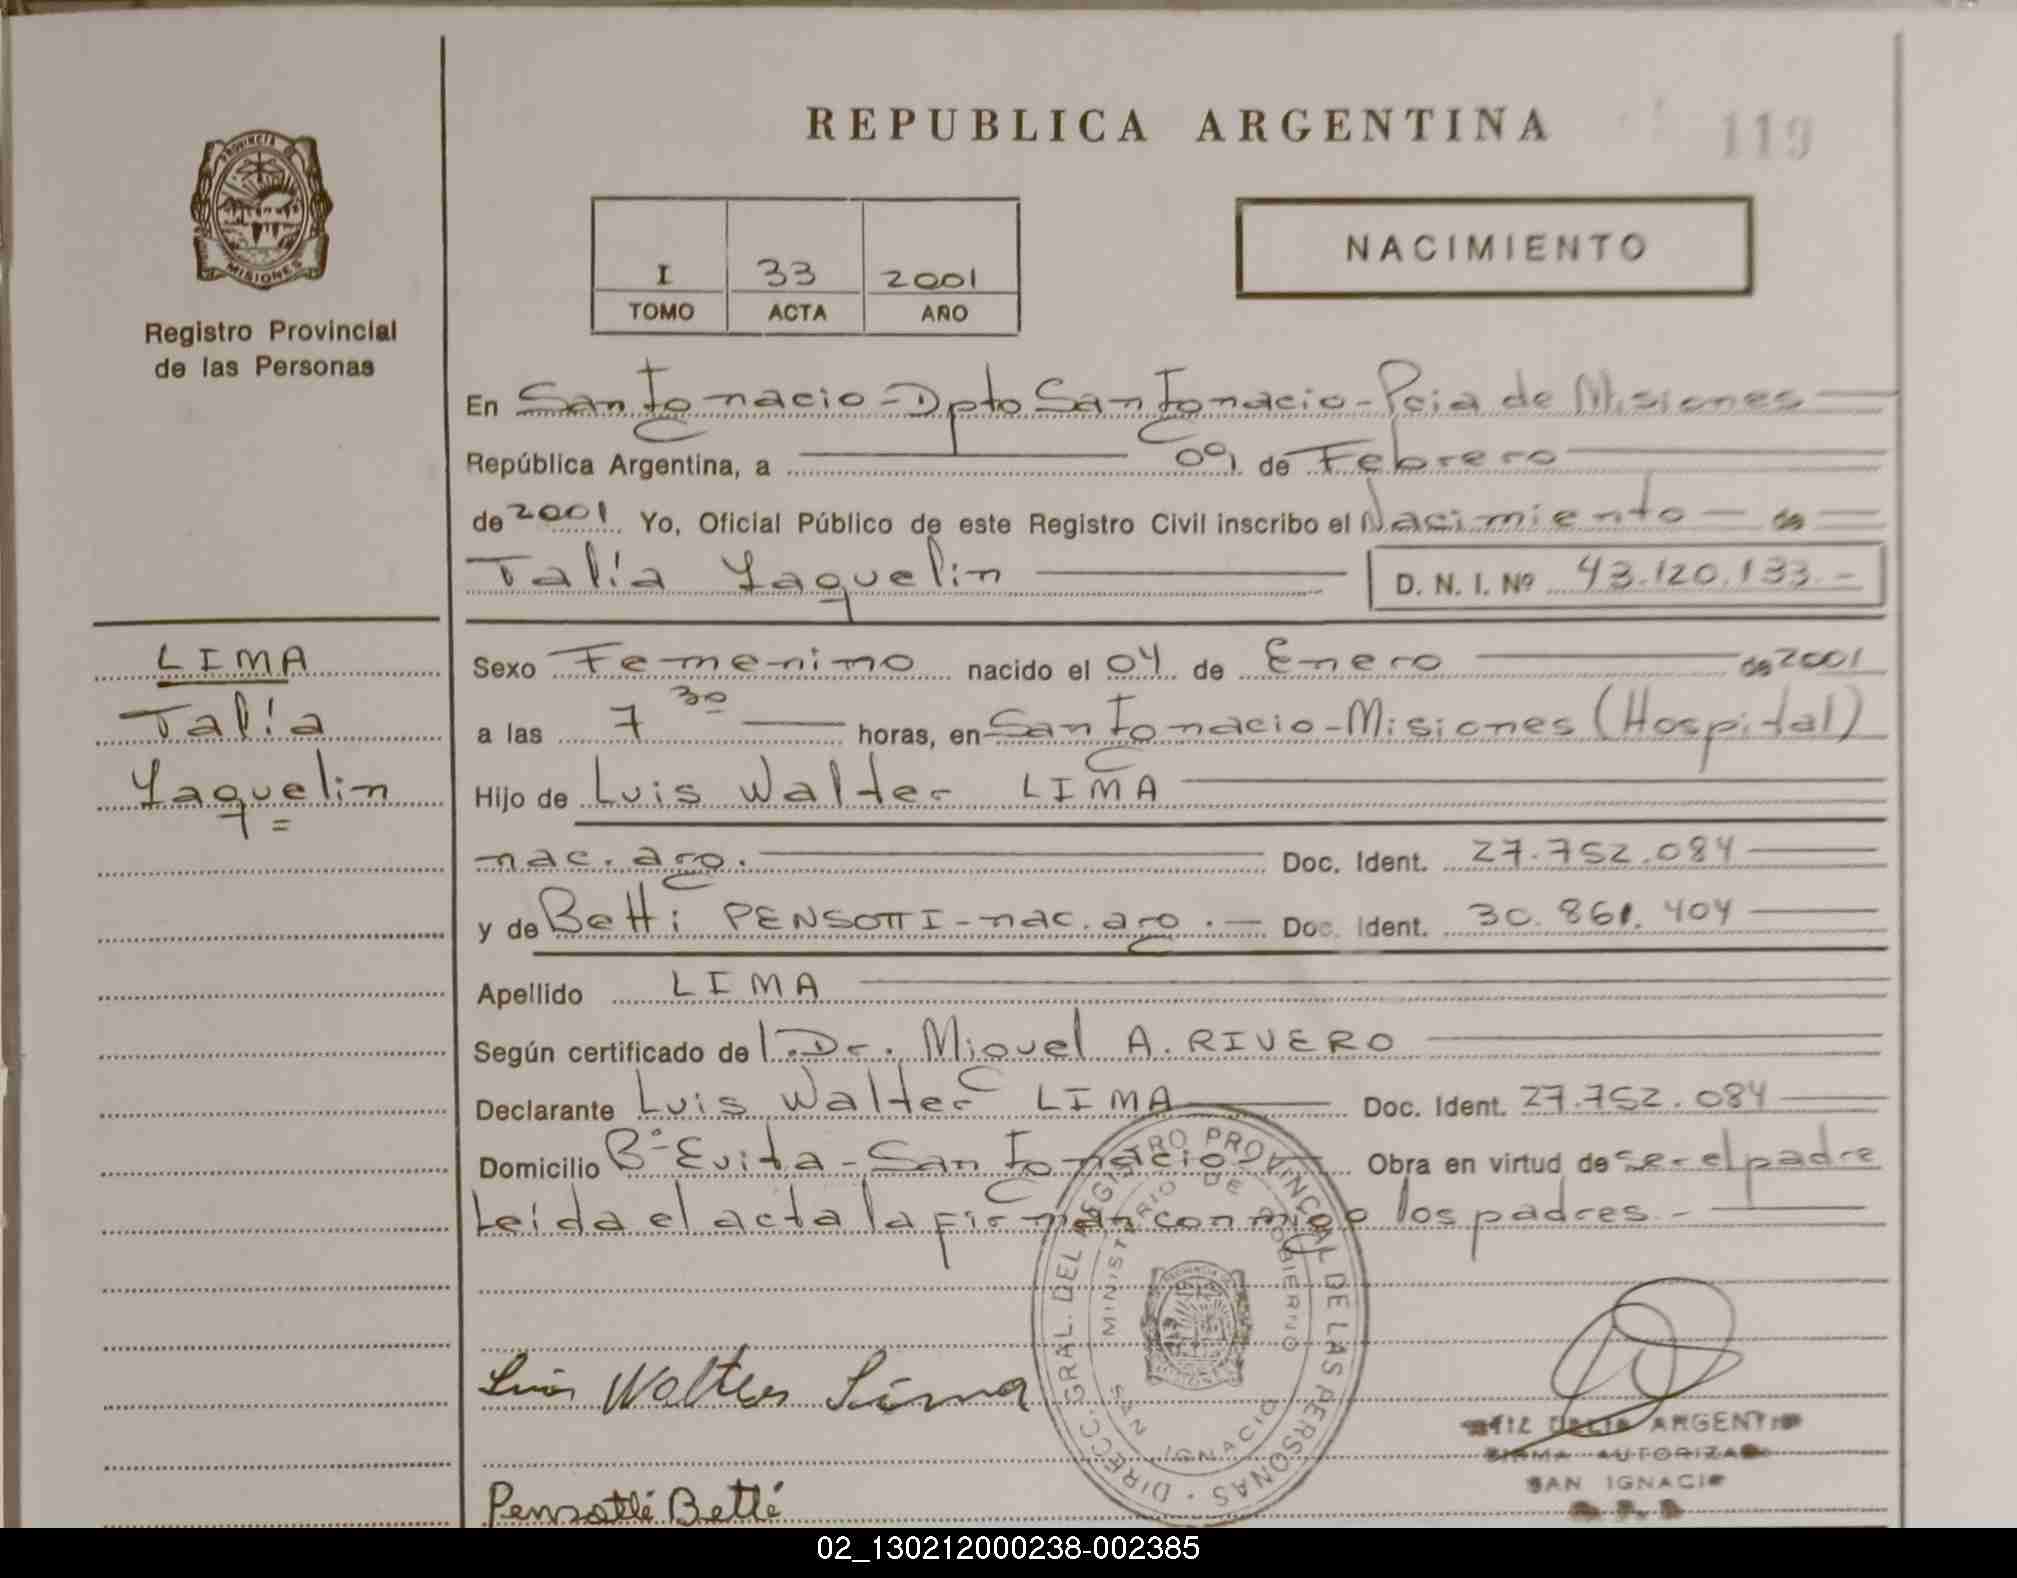 REPUBLICA ARGENTINA
119
PROVINCIA DE
MISIONES
Registro Provincial
de las Personas
I 33 2001
TOMO ACTA AÑO
NACIMIENTO
En San Ignacio - Dpto San Ignacio - Pcia de Misiones
República Argentina, a 09 de Febrero
de 2001 Yo, Oficial Público de este Registro Civil inscribo el Nacimiento de
Talía Yaquelin D. N. I. Nº 43.120.133.-
LIMA
Talía
Yaquelin =
Sexo Femenino nacido el 04 de Enero de 2001
a las 7 30 horas, en San Ignacio - Misiones (Hospital)
Hijo de Luis Walter LIMA
nac. arg. Doc. Ident. 27.752.084
y de Betti PENSOTTI - nac. arg. - Doc. Ident. 30.861.404
Apellido LIMA
Según certificado de l. Dr. Miguel A. RIVERO
Declarante Luis Walter LIMA Doc. Ident. 27.752.084
Domicilio Bº Evita - San Ignacio Obra en virtud de ser el padre
Leída el acta la firman conmigo los padres. -
DIRECC. GRAL. DEL REGISTRO PROVINCIAL DE LAS PERSONAS
MINISTERIO DE GOBIERNO
SAN IGNACIO
Luis Walter Lima
Pensotti Betti
ARGENTI
FIRMA AUTORIZAD
SAN IGNACIO
02_130212000238-002385